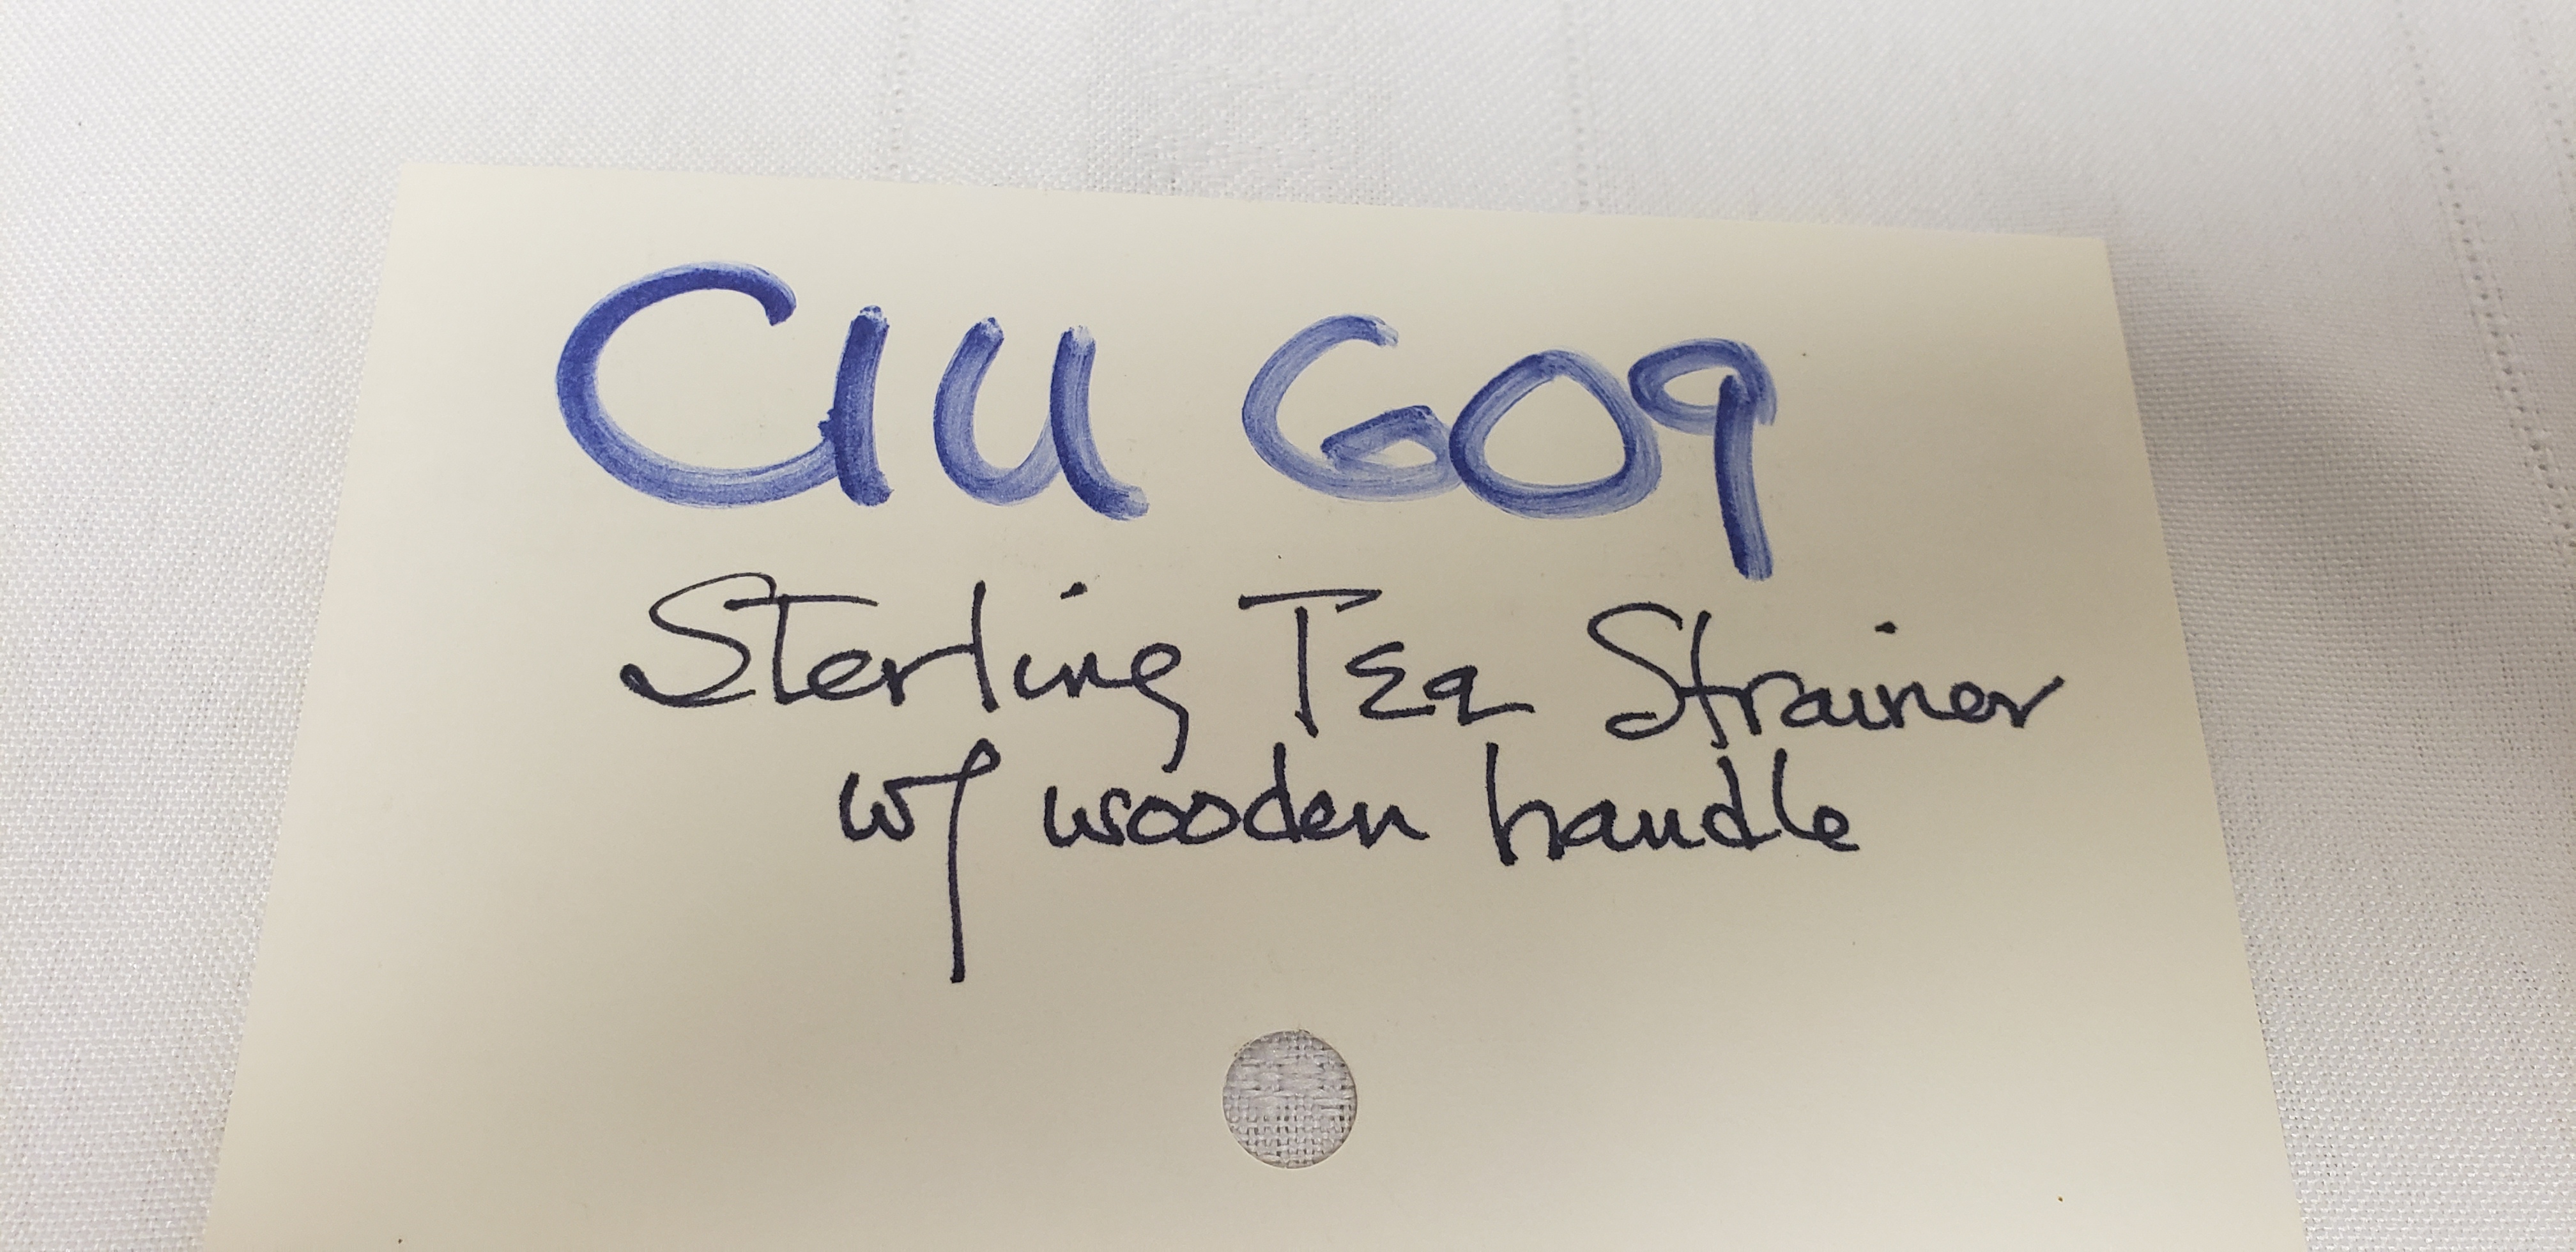 CIU 609
Sterling Tea Strainer
w/ wooden handle